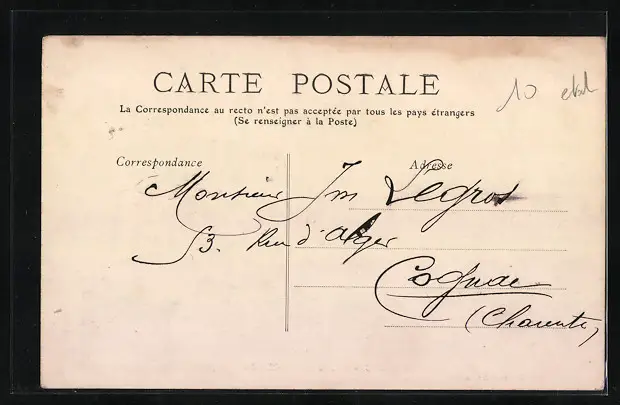 CARTE POSTALE
10
La Correspondance au recto n'est pas acceptée par tous les pays étrangers
(Se renseigner à la Poste)
Correspondance
Adresse
Monsieur Jm Legros
53. Rue d'Alger
Cognac
(Charente)